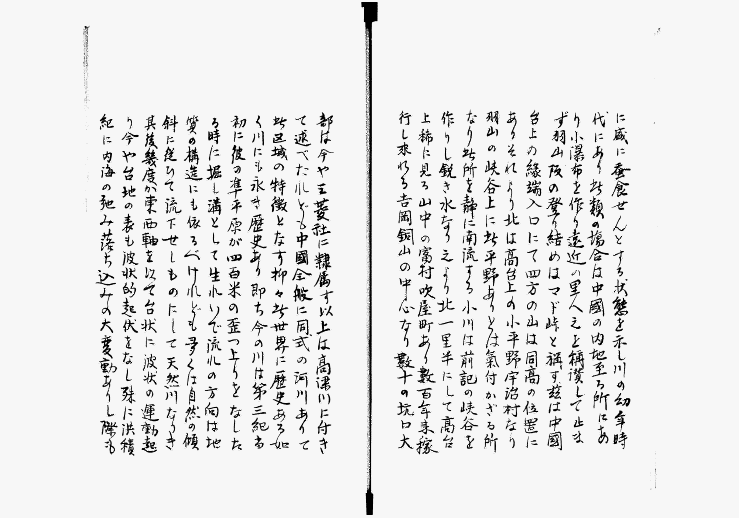 に咸に蚕食せんとする状態を示し川の幼年時
代にあり此類の塲合は中國の内地至る所にあ
り小瀑布を作り遠近の里人之を稱讃して止ま
ず羽山坂の登り結めはマド峠と稱す茲は中國
台上の縁端入口にて四方の山は同高の位置に
ありそれより北は高台上の小平野宇治村なり
羽山の峡谷上に此平野ありとは氣付かざる所
なり此所を静に南流する小川は前記の峡谷を
作りし鋭き水なり之より北一里半にして高台
上稀に見る山中の富村吹屋町あり数百年来稼
行し来れる吉岡銅山の中心なり数十の坑口大
部は今や三菱社に隷属す以上は高梁川に付き
て述べたれども中國全般に同式の河川ありて
此区域の特徴となす抑々此世界に歴史ある如
く川にも永き歴史あり即ち今の川は第三紀の
初に彼の準平原が四百米の歪つ上りをなした
る時に掘し溝として生れいで流れの方向は地
質の構造にも依るべけれども多くは自然の傾
斜に従ひて流下せしものにして天然川なりき
其後幾度か東西軸を以て台状に波状の運動起
り今や台地の表も波状的起伏をなし殊に洪積
紀に内海の弛み落ち込みの大変動ありし際も